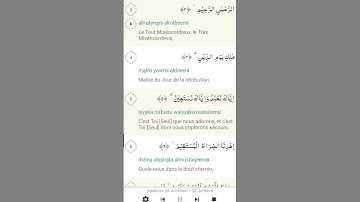 3
الرَّحْمَٰنِ الرَّحِيمِ ﴿٣﴾
alraḥmāni alraḥeemi
Le Tout Miséricordieux, le Très
Miséricordieux,
4
مَالِكِ يَوْمِ الدِّينِ ﴿٤﴾
māliki yawmi alddeeni
Maître du Jour de la rétribution.
5
إِيَّاكَ نَعْبُدُ وَإِيَّاكَ نَسْتَعِينُ ﴿٥﴾
iyyāka na'budu waiyyāka nasta'eenu
C'est Toi [Seul] que nous adorons, et c'est Toi
[Seul] dont nous implorons secours.
6
اهْدِنَا الصِّرَاطَ الْمُسْتَقِيمَ ﴿٦﴾
ihdinā alṣṣirāṭa almustaqeema
Guide-nous dans le droit chemin,